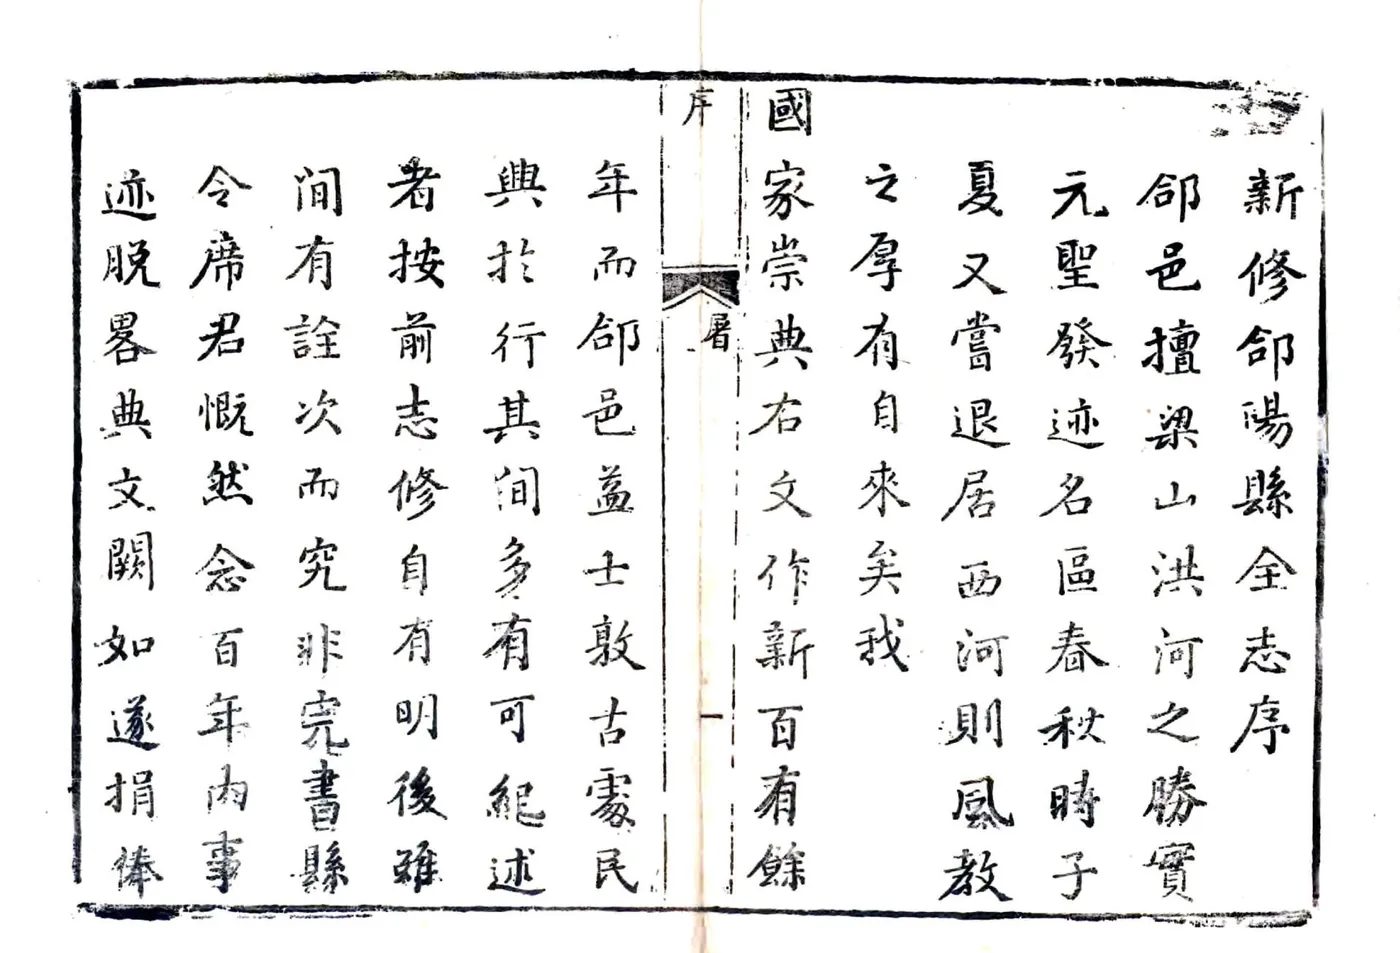 新修郃陽縣全志序
郃邑擅梁山洪河之勝實
元聖發迹名區春秋時子
夏又嘗退居西河則風教
之厚有自來矣我
國家崇典右文作新百有餘
序
屠
一
年而郃邑益士敦古處民
興於行其間多有可紀述
者按前志修自有明後雖
間有詮次而究非完書縣
令席君慨然念百年內事
迹脫畧典文闕如遂捐俸